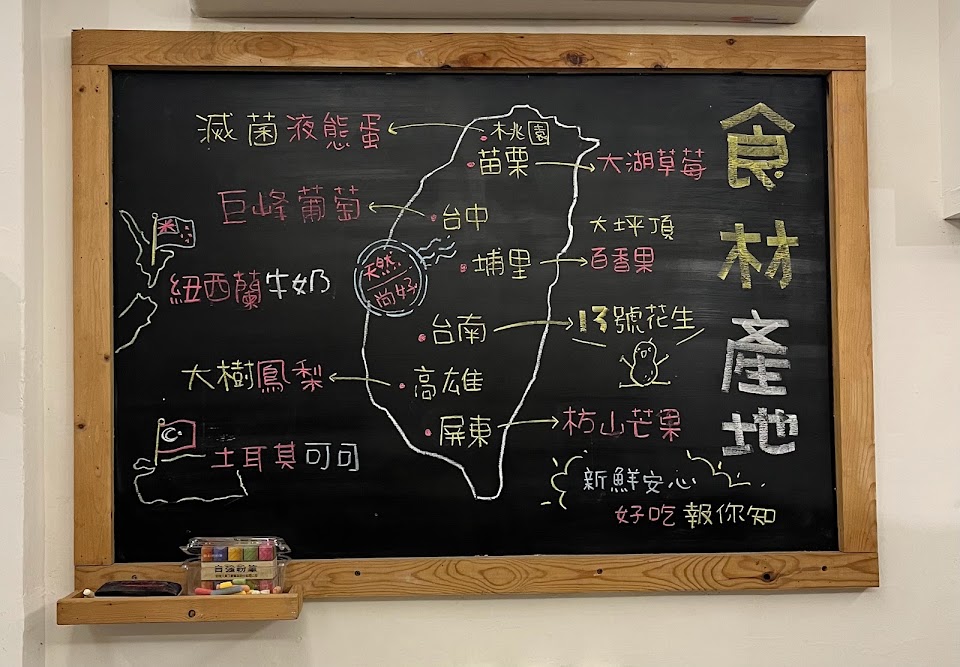 食材產地
滅菌液態蛋
桃園
苗栗
大湖草莓
巨峰葡萄
台中
大坪頂
百香果
埔里
天然
尚好
紐西蘭牛奶
台南
13號花生
大樹鳳梨
高雄
屏東
枋山芒果
土耳其可可
新鮮安心
好吃報你知
自強粉筆